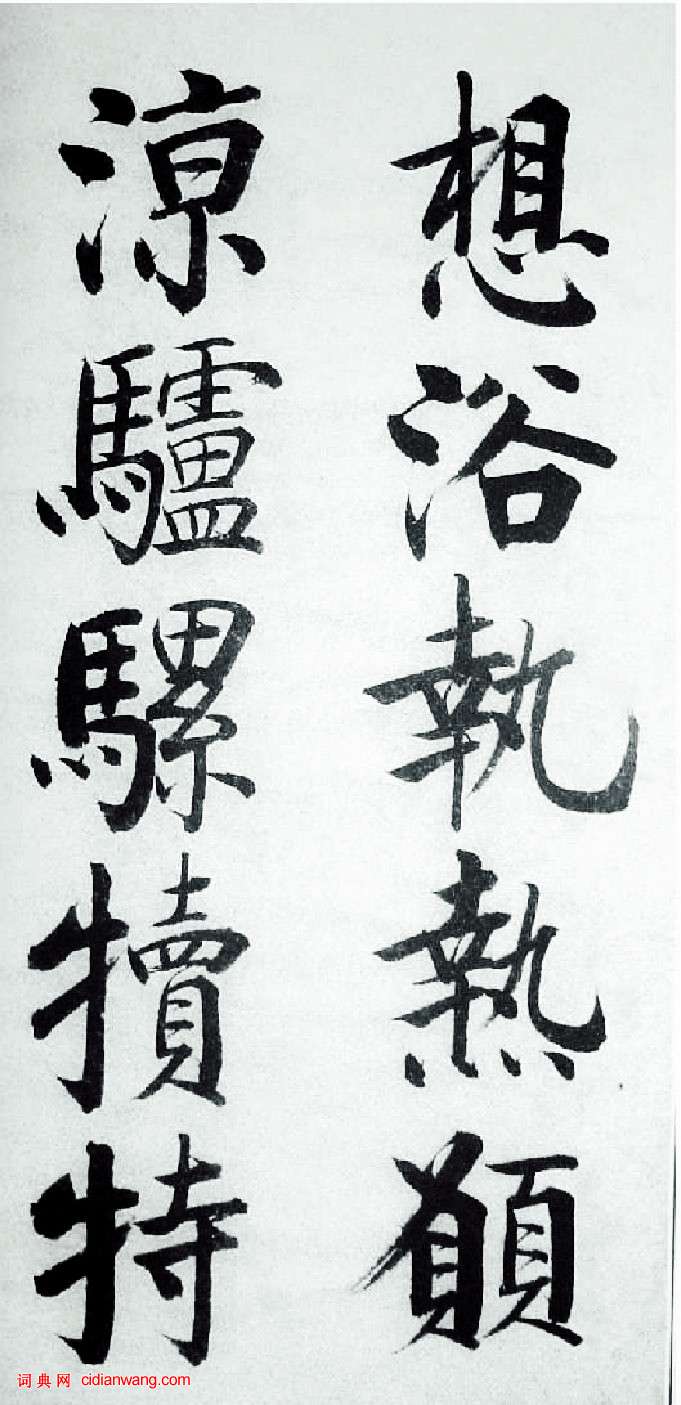 想浴執熱願
涼驢騾犢特
词典网 cidianwang.com